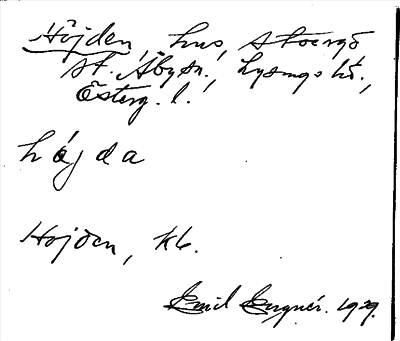 Höjden, hus, Skoergö
st. Åby sn., Lysings hd.,
Österg. l.
hǿjda
Hojden, kb.
Emil Engnér. 1929.